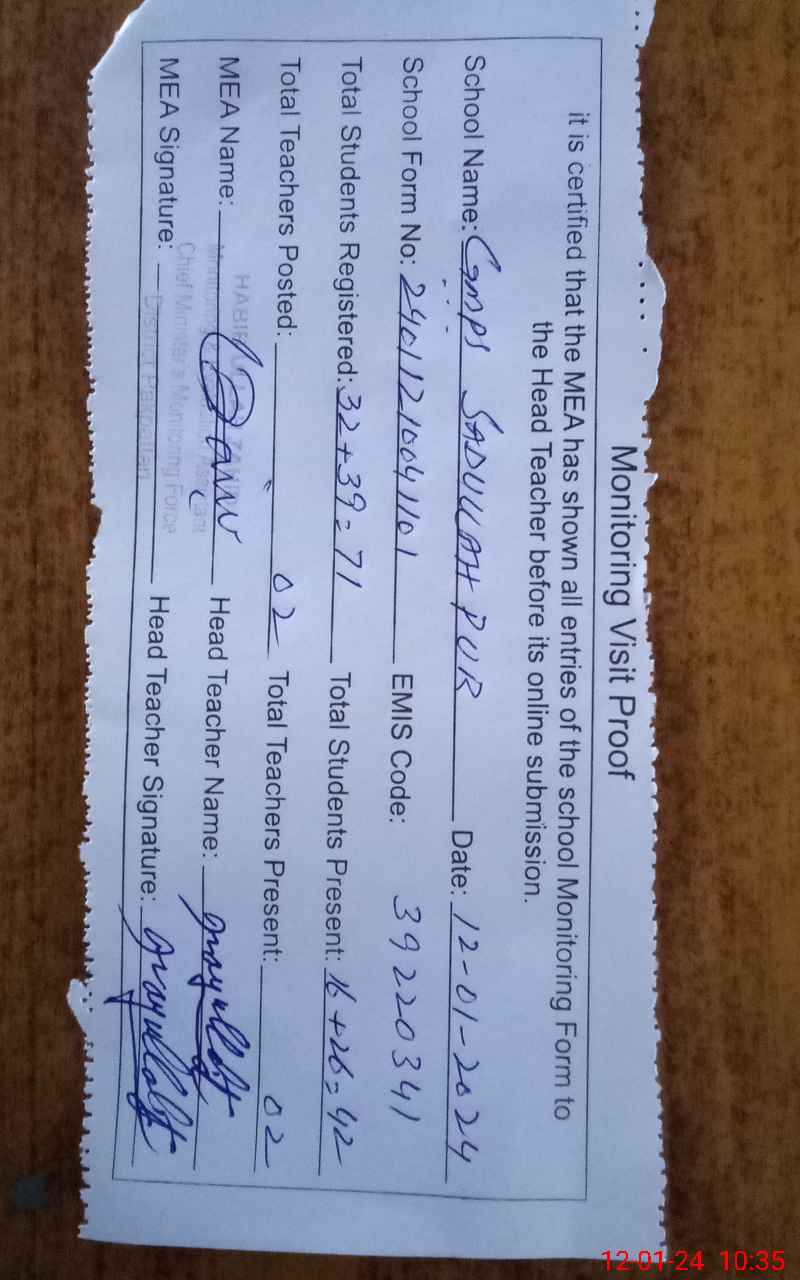 Monitoring Visit Proof
it is certified that the MEA has shown all entries of the school Monitoring Form to
the Head Teacher before its online submission.
School Name: GMPS SADULLAH PUR Date: 12-01-2024
School Form No: 24011210041101 EMIS Code: 39220341
Total Students Registered: 32+39=71 Total Students Present: 16+26=42
Total Teachers Posted: 02 Total Teachers Present: 02
MEA Name: Head Teacher Name:
MEA Signature: Head Teacher Signature:
Chief Minister's Monitoring Force
District Pakpattan
12-01-24 10:35